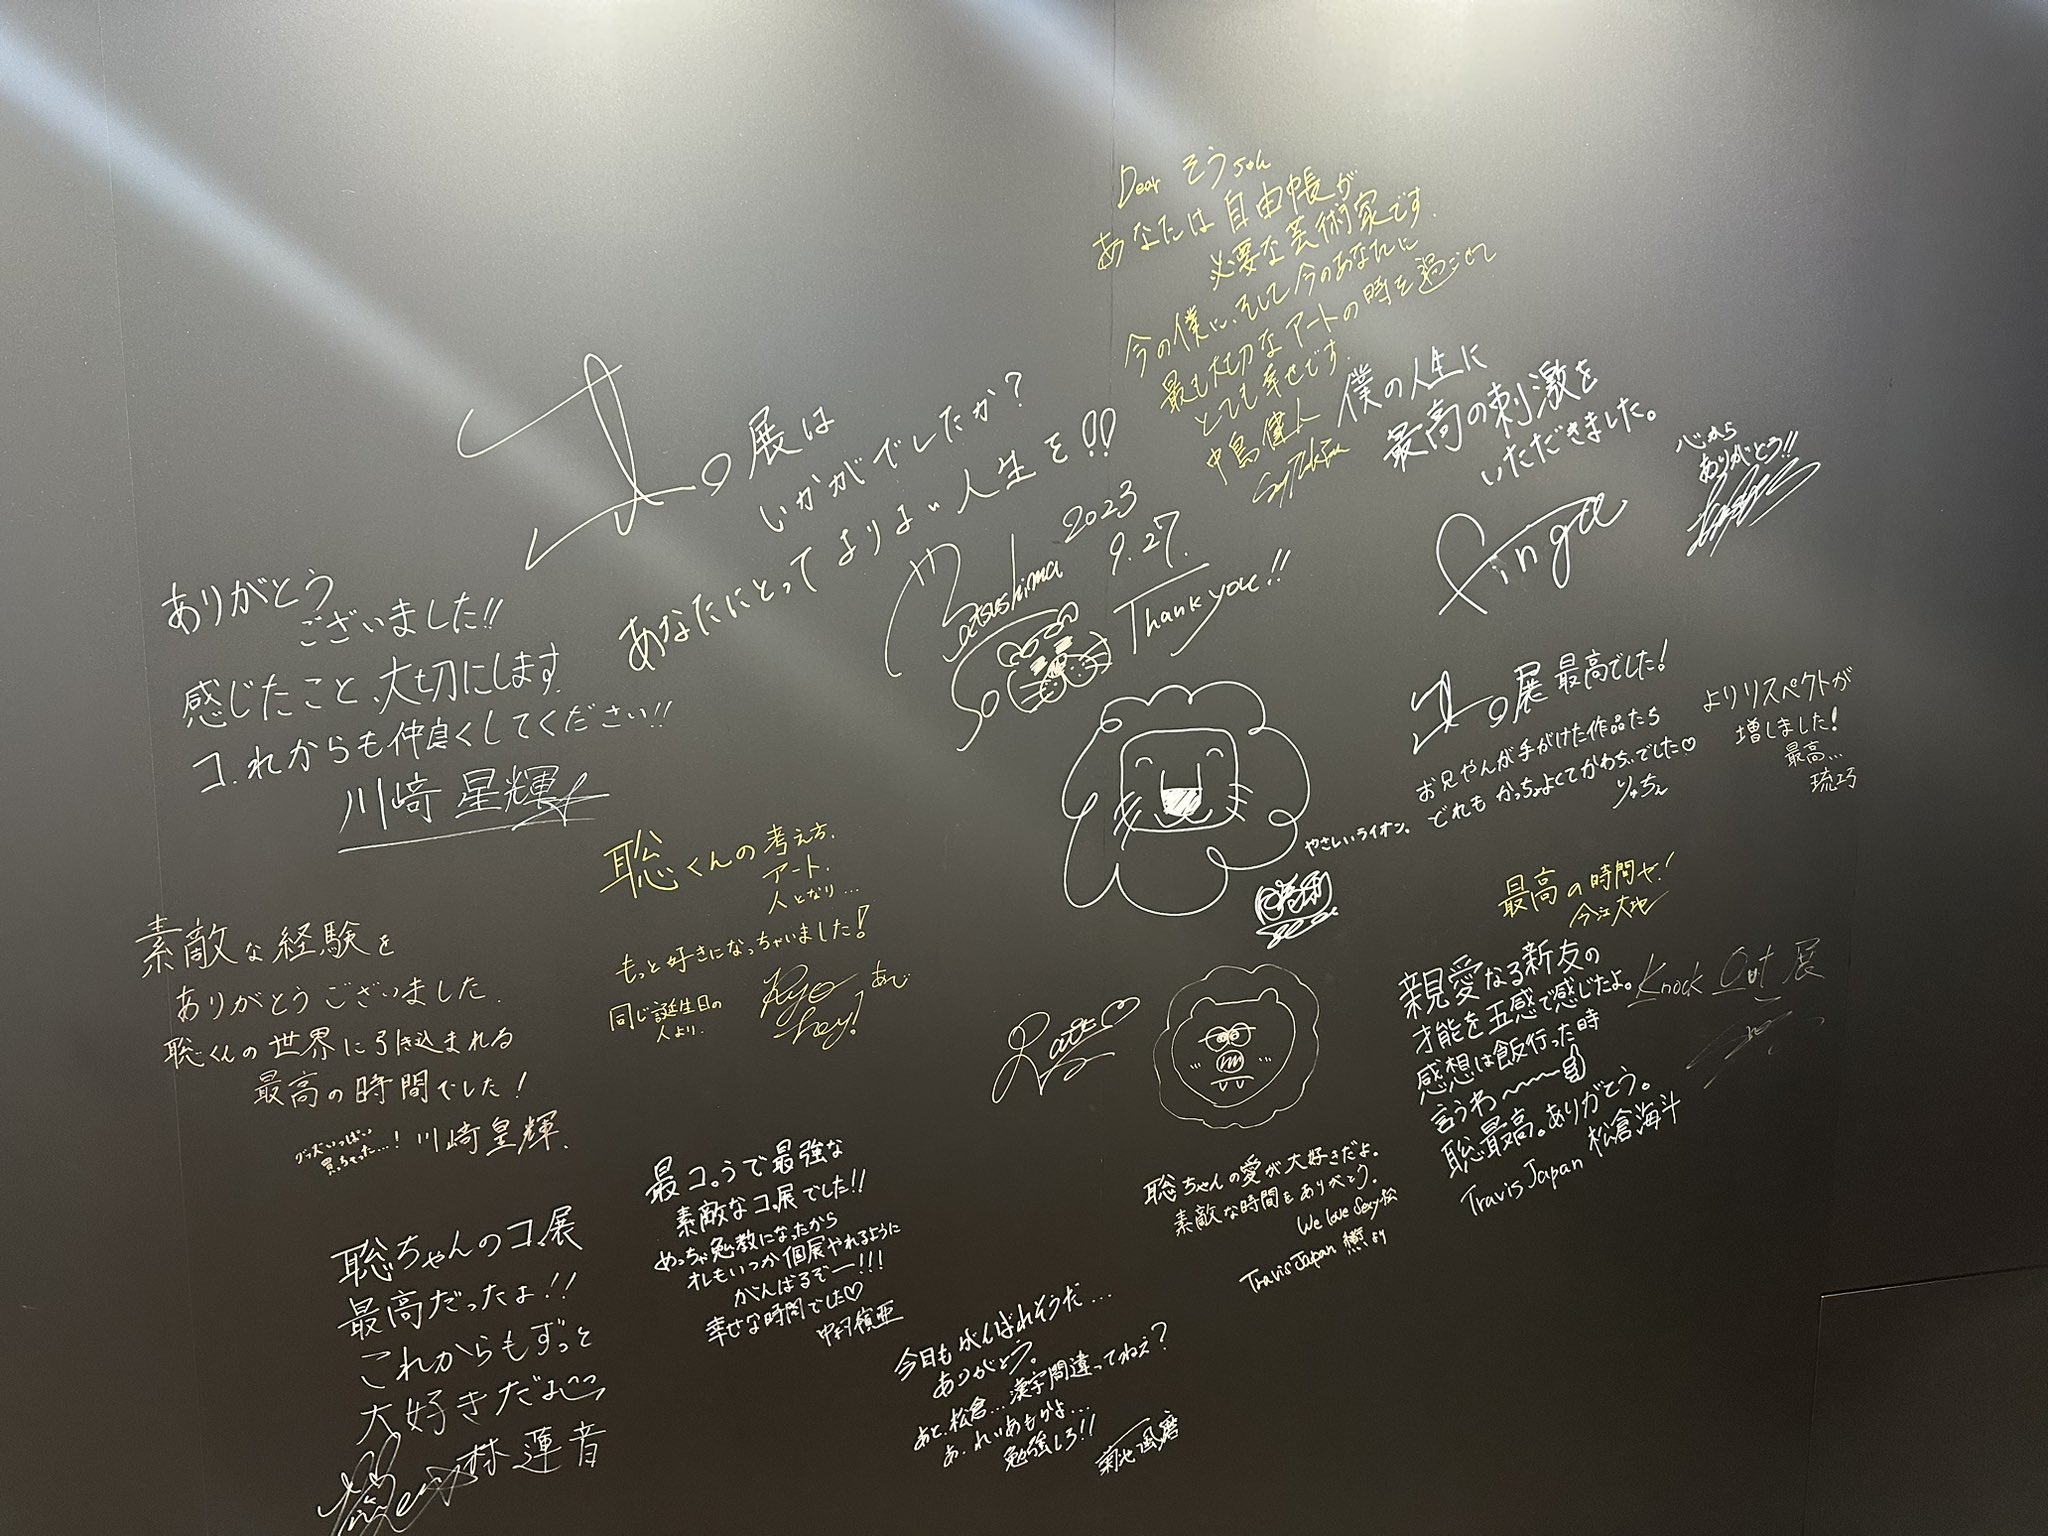 Dear そうちゃん
あなたは自由帳が
必要な芸術家です。
今の僕に、そして今のあなたに
最も大切なアートの時を過ごせて
とても幸せです。
中島健人
Sexy Zone
僕の人生に
最高の刺激を
いただきました。
心から
ありがとう!!
コ。展は
いかがでしたか?
あなたにとってよりよい人生を!!
Matsushima
So
2023
9.27.
Thank you!!
ありがとう
ございました!!
感じたこと、大切にします。
コ.れからも仲良くしてください!!
川﨑 星輝
コ。展 最高でした!
お兄やんが手がけた作品たち
どれもかっちょよくてかわちぃでした♡
りゅちぇ
よりリスペクトが
増しました!
最高...
琉巧
やさしいライオン。
聡くんの考え方、
アート、
人となり...
もっと好きになっちゃいました!
同じ誕生日の
人より.
最高の時間や!
今江大地
素敵な経験を
ありがとうございました.
聡くんの世界に引き込まれる
最高の時間でした!
グッズいっぱい
買っちゃった...!
川﨑皇輝.
親愛なる新友の
才能を五感で感じたよ。
感想は飯行った時
言うわ〜〜〜
聡最高。ありがとう。
Travis Japan 松倉海斗
Knock Out 展
聡ちゃんの愛が大好きだよ。
素敵な時間をありがとう。
We love Sexy松
Travis Japan より
最コ。うで最強な
素敵なコ。展でした!!
めっちゃ勉教になったから
オレもいつか個展やれるように
がんばるぞー!!!
幸せな時間でした♡
中村嶺亜
聡ちゃんのコ.展
最高だったよ!!
これからもずっと
大好きだよ
林蓮音
今日もがんばれそうだ...
ありがとう。
あと、松倉...漢字間違ってねえ?
あ、れいあもかよ...
勉強しろ!!
菊池風磨